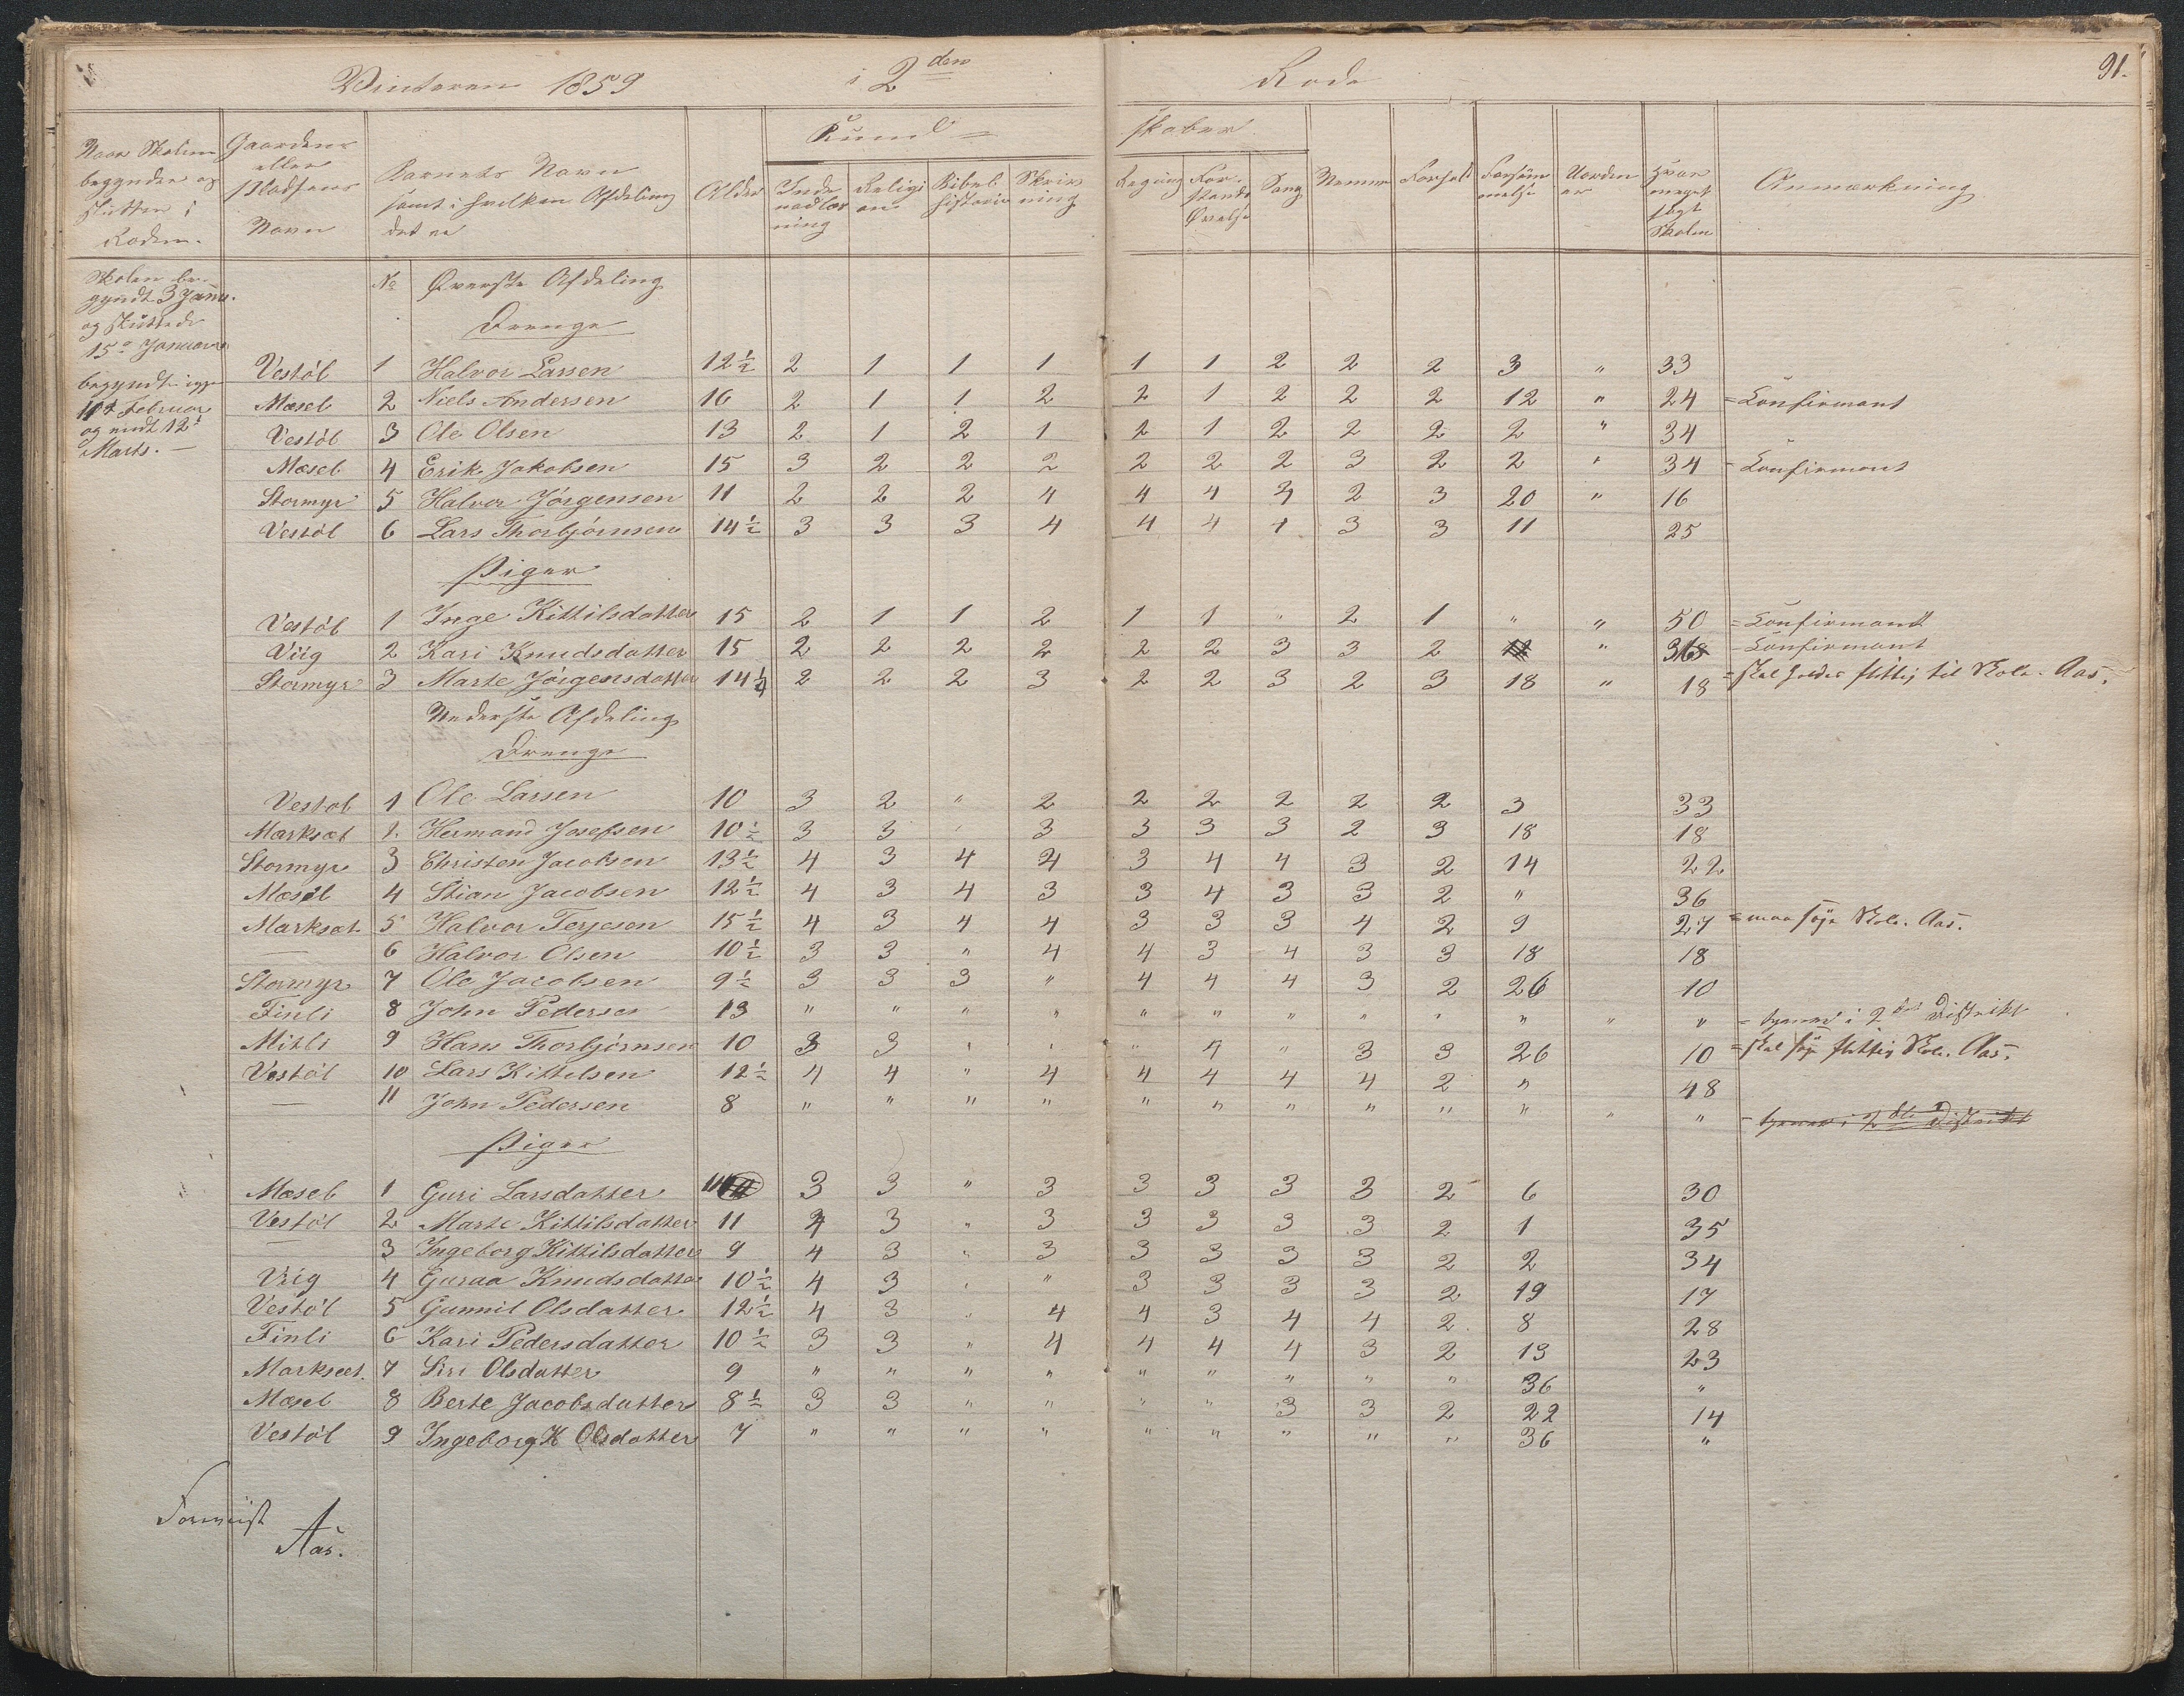 91.
Vinteren 1859 i 2den Rode
Naar Skolen begyndes og sluttes i Roden.
Gaardens eller Pladsens Navn
Barnets Navn samt i hvilken Afdeling det er
Alder
Kund- skaber
Indenadlæsning
Religion
Bibelhistorie
Skrivning
Regning
Forstands Øvelse
Sang
Nemme
Forhold
Forsømmelse
Uorden er
Hvor meget søgt Skolen
Anmærkning
Skolen begyndt 3 Janu. og sluttede 15de Januar
begyndt igjen 11te Februar og endt 12te Marts. —
No Øverste Afdeling
Drenge
Vestøl 1 Halvor Larsen 12½ 2 1 1 1 1 1 2 2 2 3 " 33
Mæsel 2 Niels Andersen 16 2 1 1 2 2 1 2 2 2 12 " 24 = Konfirmant
Vestøl 3 Ole Olsen 13 2 1 2 1 2 1 2 2 2 2 " 34
Mæsel 4 Erik Jakobsen 15 3 2 2 2 2 2 2 3 2 2 " 34 = Konfirmant
Stormyr 5 Halvor Jørgensen 11 2 2 2 4 4 4 4 2 3 20 " 16
Vestøl 6 Lars Thorbjørnsen 14½ 3 3 3 4 4 4 4 3 3 11 25
Piger
Vestøl 1 Inge Kittilsdatter 15 2 1 1 2 1 1 " 2 1 " " 50 = Konfirmant
Viig 2 Kari Knudsdatter 15 2 2 2 2 2 2 3 3 2 " 36 = Konfirmant
Stormyr 3 Marte Jørgensdatter 14¼ 2 2 2 3 2 2 3 2 3 18 " 18 = skal holdes flittig til Skole. Aas.
Nederste Afdeling
Drenge
Vestøl 1 Ole Larsen 10 3 2 " 2 2 2 2 2 2 3 33
Marksæt 2. Hermand Josefsen 10½ 3 3 " 3 3 3 3 2 3 18 18
Stormyr 3 Christen Jacobsen 13½ 4 3 4 4 3 4 4 3 2 14 22
Mæsel 4 Stian Jacobsen 12½ 4 3 4 3 3 4 3 3 2 " 36
Marksæt 5 Halvor Terjesen 15½ 4 3 4 4 3 3 3 4 2 9 27 = maa søge Skole. Aas.
— 6 Halvor Olsen 10½ 3 3 " 4 4 3 4 3 3 18 18
Stormyr 7 Ole Jacobsen 9½ 3 3 3 " 4 4 4 3 2 26 10
Finli 8 John Pedersen 13 " " " " " " " " " " " " = tjener i 2det Distrikt
Mitli 9 Hans Thorbjørnsen 10 3 3 " " " 4 " 3 3 26 10 = skal søge flittig Skole. Aas.
Vestøl 10 Lars Kittilsen 12½ 4 4 " 4 4 4 4 4 2 " 48
— 11 John Pedersen 8 " " " " " " " " " " " " = tjener i 2det Distrikt
Piger
Mæsel 1 Guri Larsdatter 11 3 3 " 3 3 3 3 3 2 6 30
Vestøl 2 Marte Kittilsdatter 11 4 3 " 3 3 3 3 3 2 1 35
— 3 Ingeborg Kittilsdatter 9 4 3 " 3 3 3 3 3 2 2 34
Viig 4 Guraa Knudsdatter 10½ 4 3 " " 3 3 3 3 2 19 17
Vestøl 5 Gunnil Olsdatter 12½ 4 3 " 4 4 3 4 4 2 8 28
Finli 6 Kari Pedersdatter 10½ 3 3 " 4 4 4 4 3 2 13 23
Marksæt. 7 Siri Olsdatter 9 " " " " " " " " " 36 "
Mæsel 8 Berte Jacobsdatter 8½ 3 3 " " " " 3 3 2 22 14
Vestøl 9 Ingeborg K Olsdatter 7 " " " " " " " " " 36 "
Forevist
Aas.